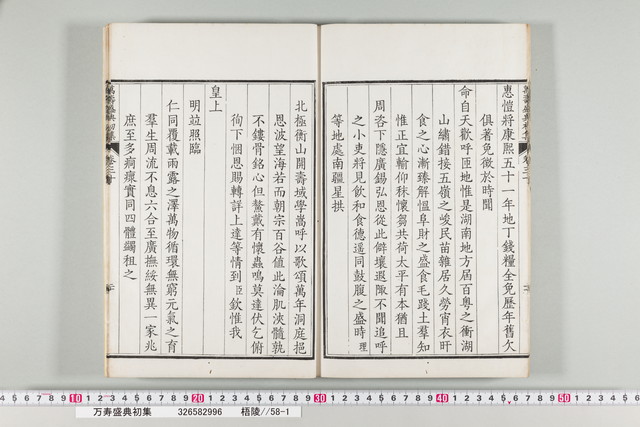 惠愷將康熙五十一年地丁錢糧全免歷年舊欠
俱著免徵於時聞
命自天歡呼匝地惟是湖南地方屆百粵之衝湖
山繡錯接五嶺之峻民苗雜居久勞宵衣旰
食之心漸臻解慍阜財之盛食毛踐土羣知
惟正宜輸仰秣懷芻共荷太平有本猶且
周咨下隱廣錫弘恩從此僻壤遐陬不聞追呼
之小吏將見飲和食德遥同鼓腹之盛時理
等地處南疆星拱
北極衡山開壽域學嵩呼以歌頌萬年洞庭挹
恩波望海若而朝宗百谷值此淪肌浹髓孰
不鏤骨銘心但鰲戴有懷蟲鳴莫達伏乞俯
徇下悃恩賜轉詳上達等情到臣欽惟我
皇上
明竝照臨
仁同覆載雨露之澤萬物循環無窮元氣之育
羣生周流不息六合至廣撫綏無異一家兆
庶至多痌瘝實同四體蠲租之
万寿盛典初集 326582996 梧陵//58-1
10 20 30 40 50